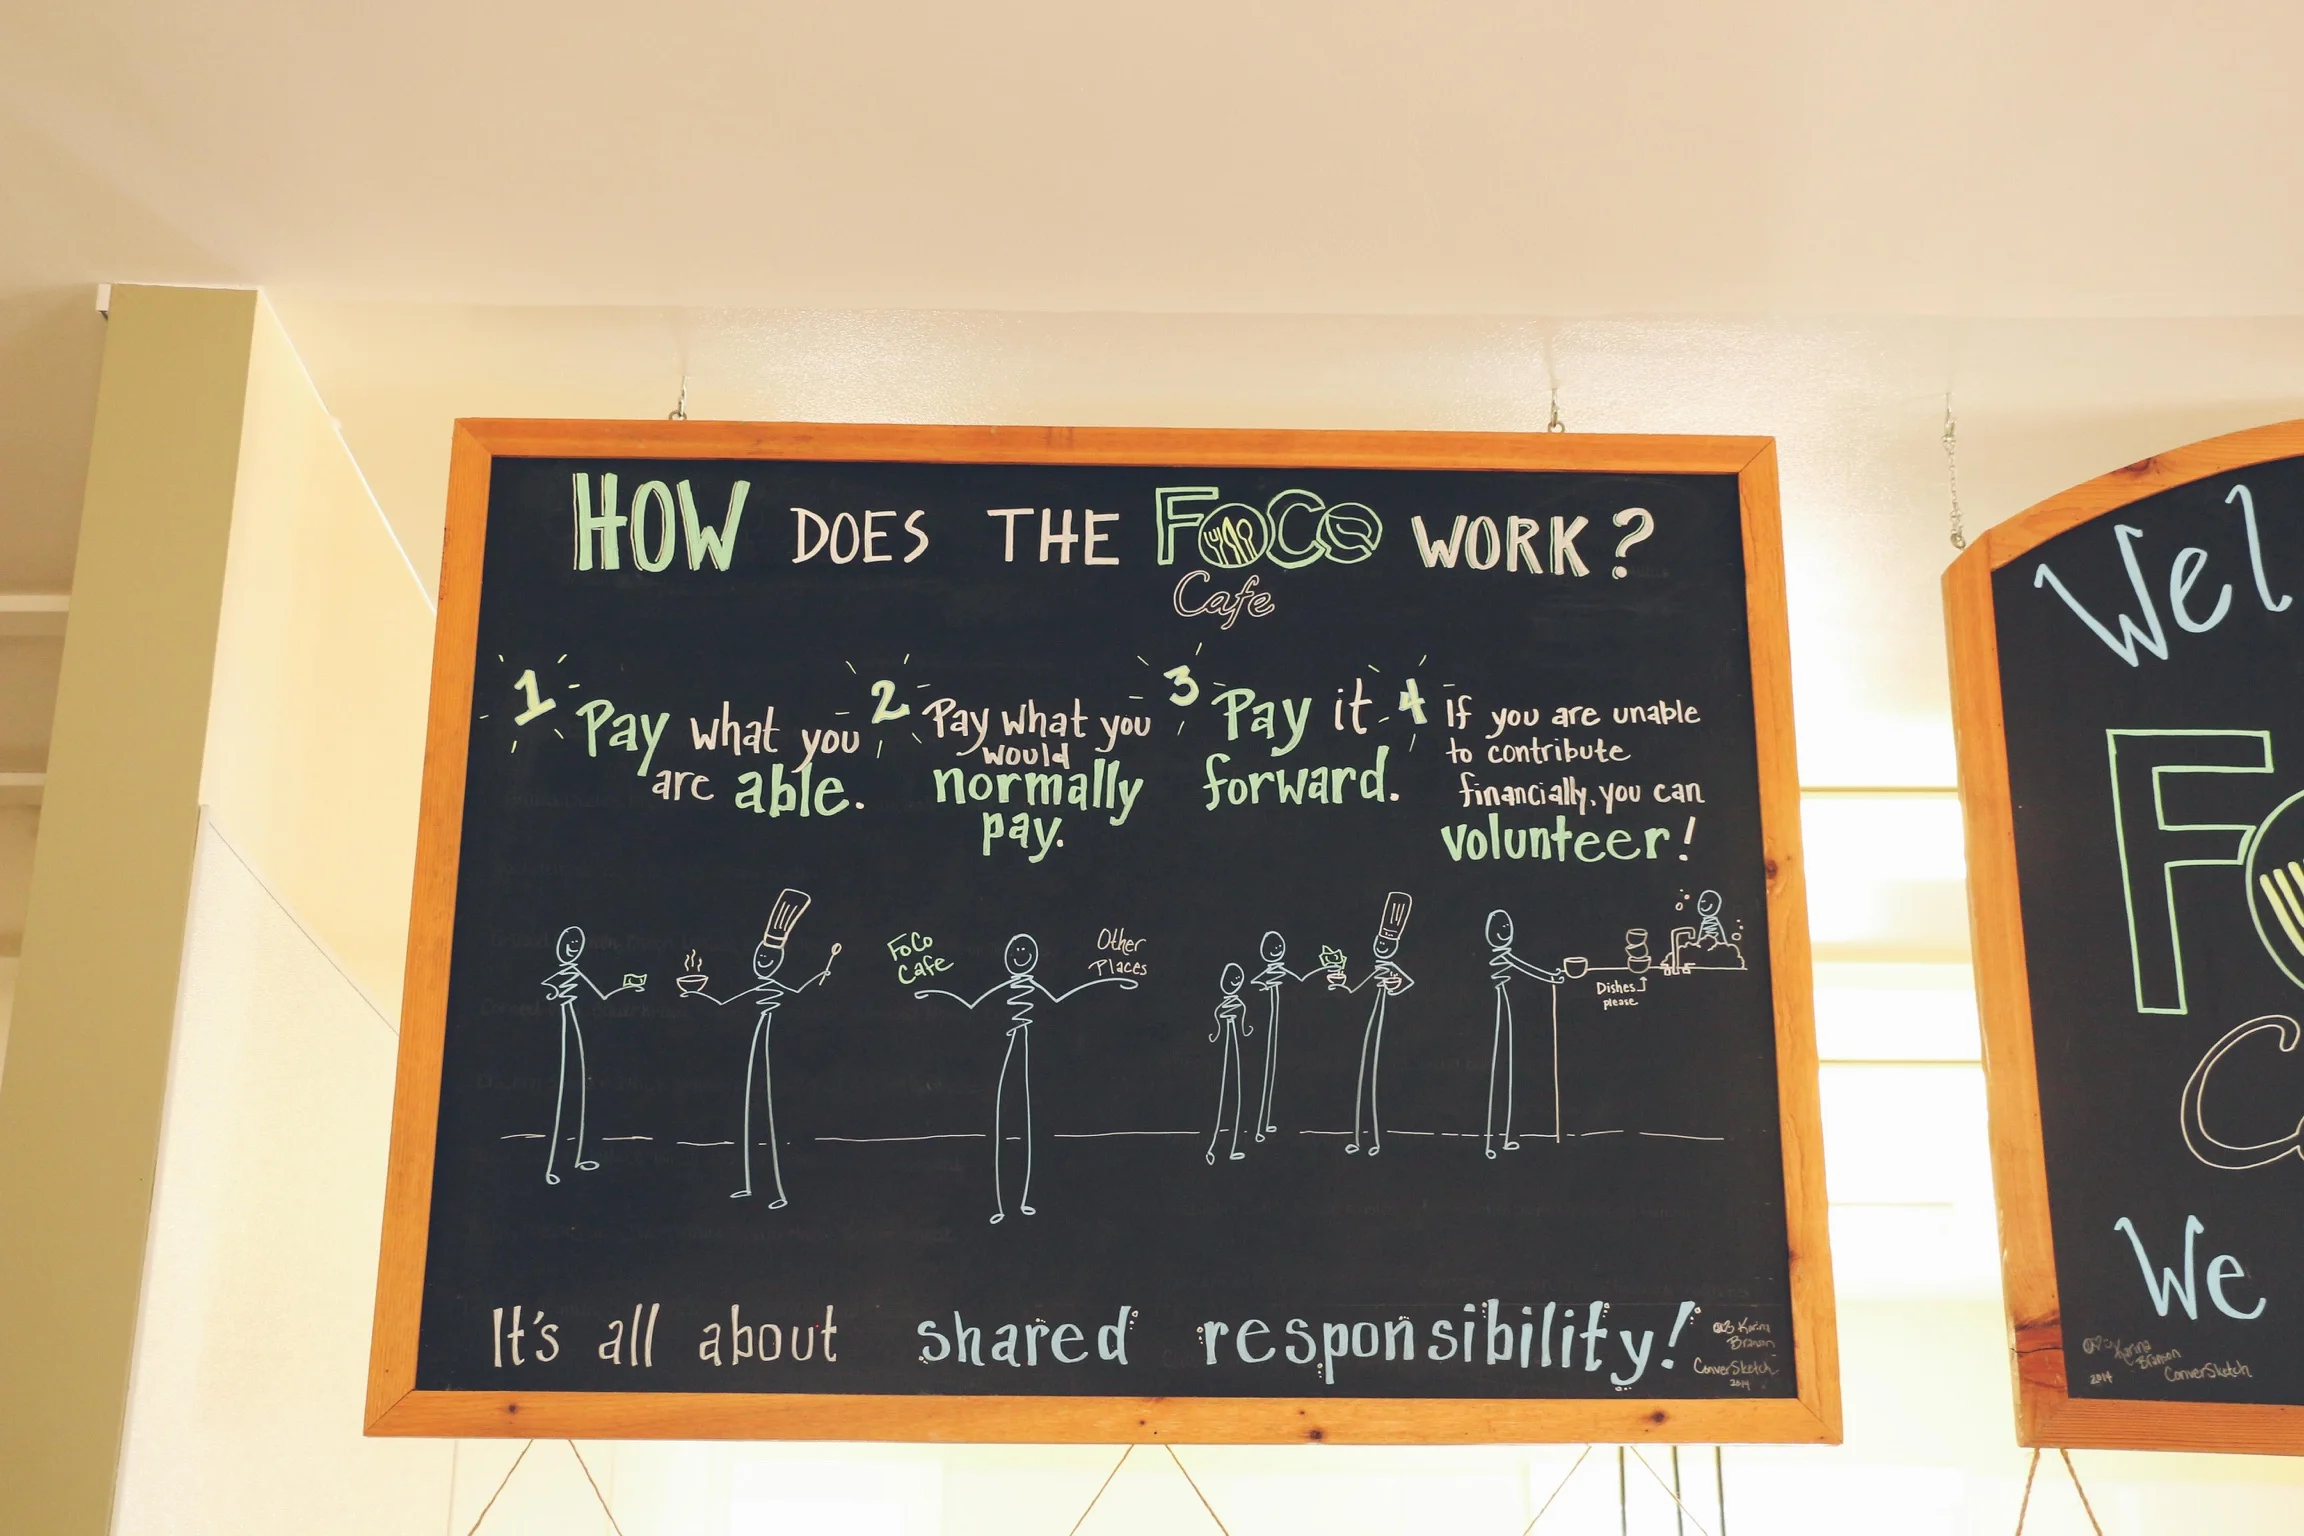 HOW DOES THE FOCO WORK?
Cafe
1 Pay what you
are able.
2 Pay what you
would
normally
pay.
3 Pay it
forward.
4 If you are unable
to contribute
financially, you can
volunteer!
FoCo
Cafe
Other
Places
Dishes
please
It's all about shared responsibility!
Karina
Branson
ConverSketch
2014
Wel
Fo
C
We
Karina
Branson
2014 ConverSketch